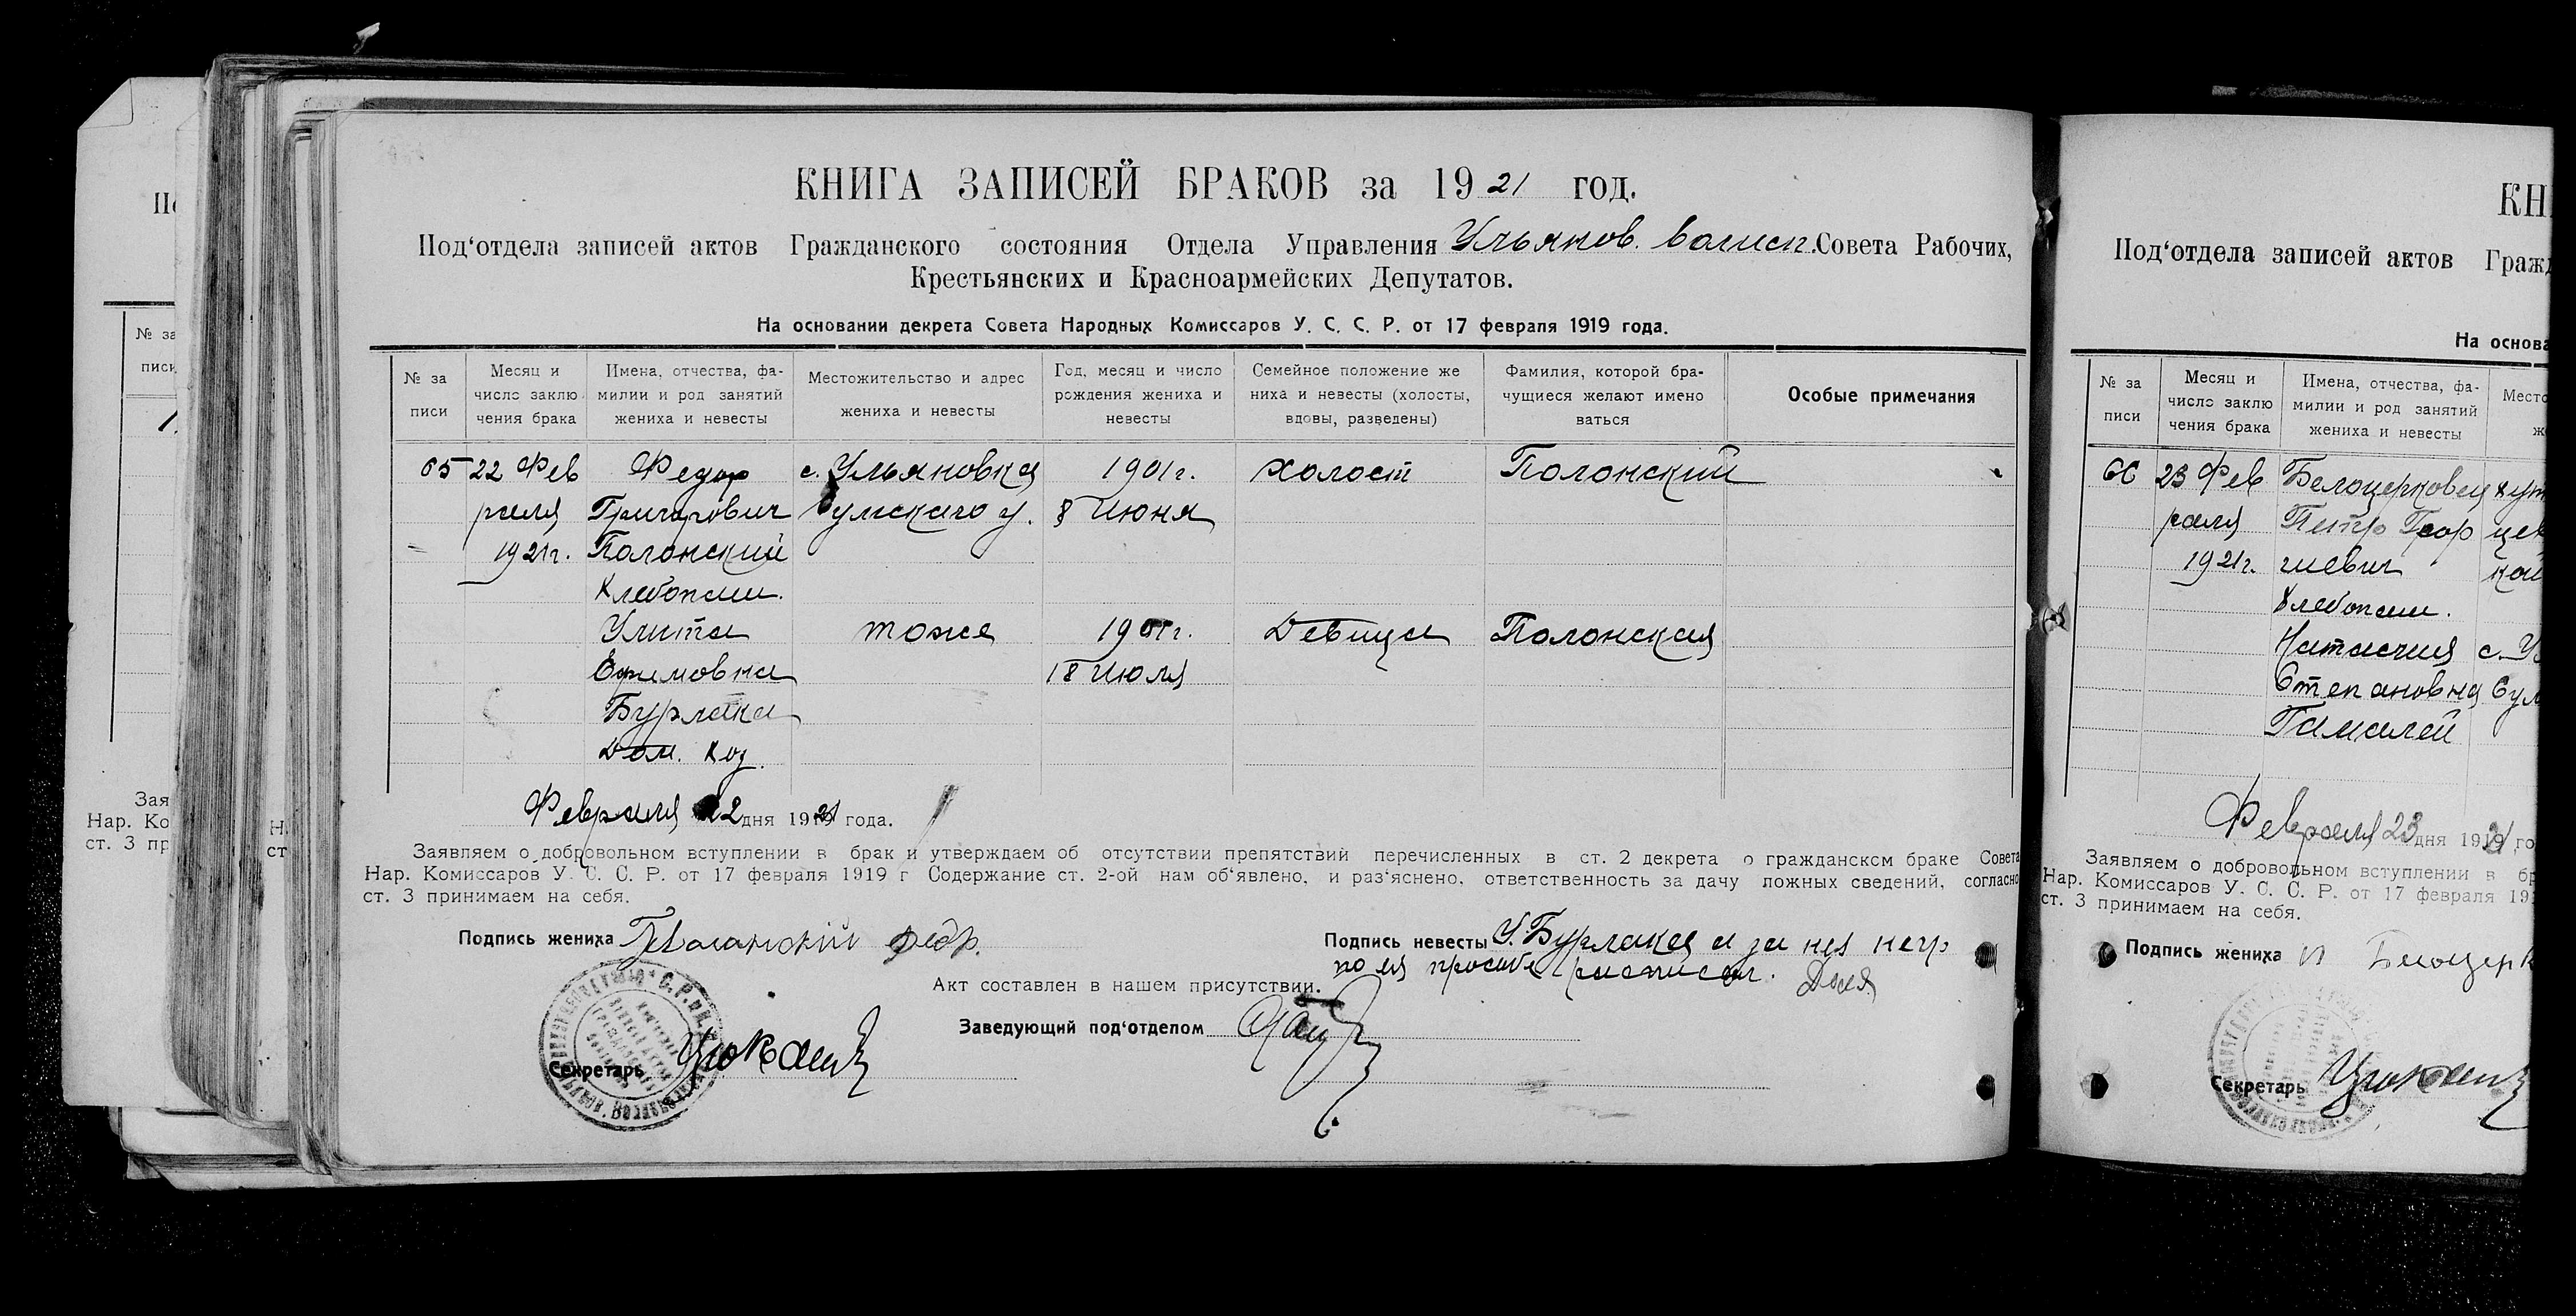 КНИГА ЗАПИСЕЙ БРАКОВ за 1921 год.
Под‘отдела записей актов Гражданского состояния Отдела Управления Ульянов. волисп. Совета Рабочих,
Крестьянских и Красноармейских Депутатов.
На основании декрета Совета Народных Комиссаров У. С. С. Р. от 17 февраля 1919 года.
№ за писи
Месяц и число заклю чения брака
Имена, отчества, фа- милии и род занятий жениха и невесты
Местожительство и адрес жениха и невесты
Год, месяц и число рождения жениха и невесты
Семейное положение же ниха и невесты (холосты, вдовы, разведены)
Фамилия, которой бра- чущиеся желают имено ваться
Особые примечания
65 22 Фев Федор с. Ульяновка 1901г. холост Полонский
раля Григорович Сумского у. 8 Июня
1921г. Полонский
Хлебопаш.
Улита тоже 1901г. Девица Полонская
Ефимовна 18 Июля
Бурлака
Дом. Хоз.
Февраля 22 дня 1921 года.
Заявляем о добровольном вступлении в брак и утверждаем об отсутствии препятствий перечисленных в ст. 2 декрета о гражданском браке Совета
Нар. Комиссаров У. С. С. Р. от 17 февраля 1919 г Содержание ст. 2-ой нам об‘явлено, и раз‘яснено, ответственность за дачу ложных сведений, согласно
ст. 3 принимаем на себя.
Подпись жениха Полонский Федр.
Подпись невесты У. Бурлака а за нея негр
по ея просьбе росписал.
Акт составлен в нашем присутствии.
Заведующий под‘отделом
Секретарь
КН
Под‘отдела записей актов Гражд
На основа
№ за писи
Месяц и число заклю чения брака
Имена, отчества, фа- милии и род занятий жениха и невесты
Место ж
66 23 Фев Белоцерковец хут
раля Петр Геор цек
1921г. гиевич кой
Хлебопаш.
Наталия с. Ул
Степановна Сум
Гамалей
Февраля 23 дня 1921 го
Заявляем о добровольном вступлении в бр
Нар. Комиссаров У. С. С. Р. от 17 февраля 191
ст. 3 принимаем на себя.
Подпись жениха П Белоцерк
Секретарь
№ за
писи
Зая
Нар. Ко
ст. 3 пр